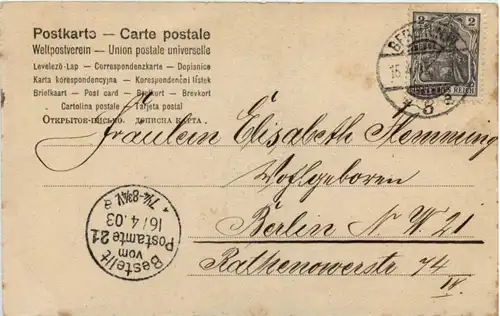 Postkarte — Carte postale
Weltpostverein — Union postale universelle
Levelező-Lap — Correspondenzkarte — Dopisnice
Karta korespondencyjna — Korespondenční lístek
Briefkaart — Post card — Brefkort — Brevkort
Cartolina postale — Tarjeta postal
Открытое-письмо. дописна карта.
2 2
BERLIN N.W.
15.
* 8 a
DEUTSCHES REICH
Fräulein Elisabeth Flemming
Wohlgeboren
Berlin N W. 21
Rathenowerstr 74
IV.
Bestellt
vom
Postamte 21
16/4.03
* 7¼-8¾V. a